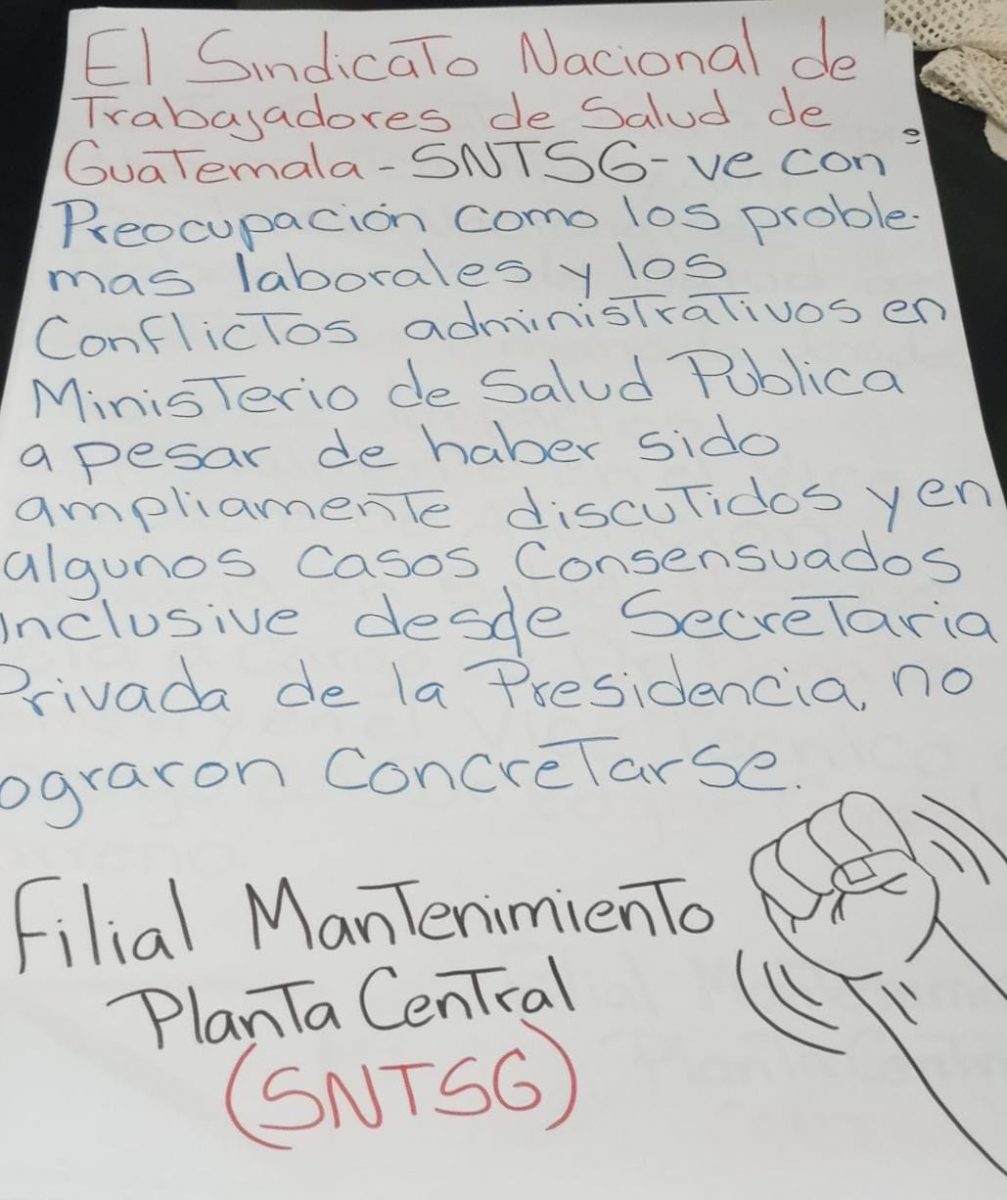 El Sindicato Nacional de
Trabajadores de Salud de
Guatemala - SNTSG - ve con :
Preocupación como los proble-
mas laborales y los
Conflictos administrativos en
Ministerio de Salud Pública
a pesar de haber sido
ampliamente discutidos y en
algunos casos Consensuados
inclusive desde Secretaria
Privada de la Presidencia, no
ograron Concretarse.
Filial Mantenimiento
Planta Central
(SNTSG)